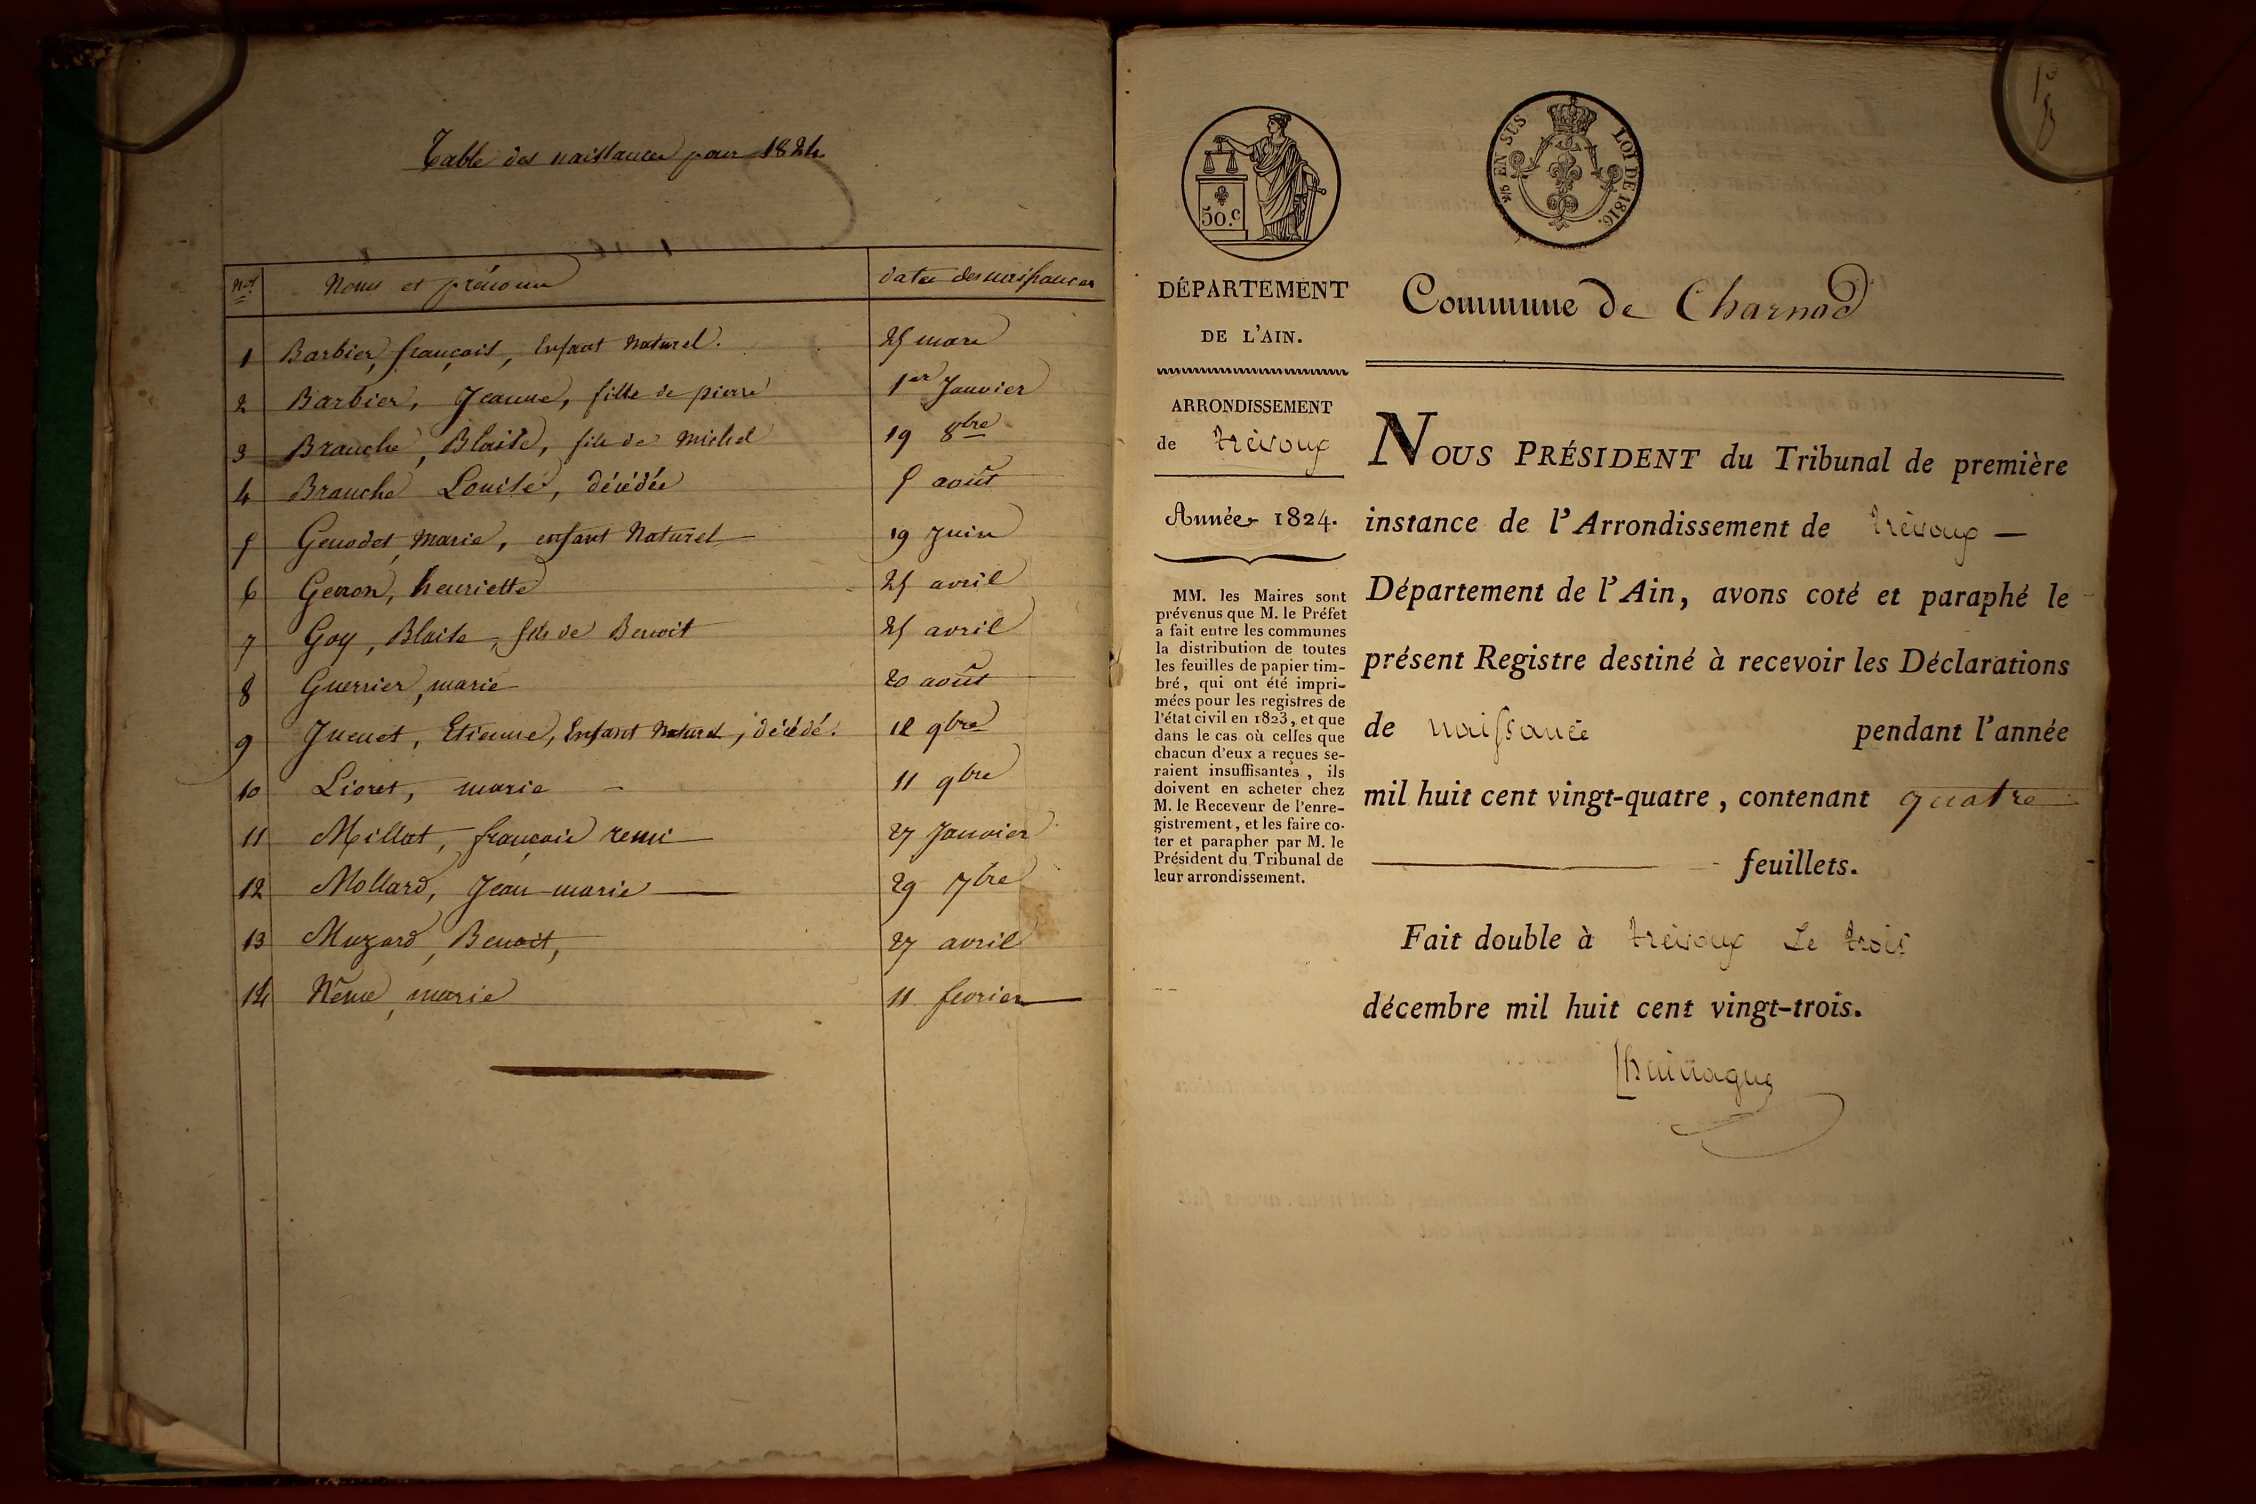 Table des naissances pour 1824
Nos Noms et prénoms dates des naissances
1 Barbier, françois, Enfant Naturel. 25 mars
2 Barbier, Jeanne, fille de pierre 1er Janvier
3 Branche, Blaise, fils de Michel 19 8bre
4 Branche Louise, décédée 5 août
5 Genodet, Marie, enfant Naturel 19 Juin
6 henriette 25 avril
7 Goy, Blaise, fils de Benoit 25 avril
8 Guerrier, marie 20 août
9 Juenet, Etienne, Enfant Naturel, décédé. 12 9bre
10 Lioret, marie 11 9bre
11 Millat, françois remi 27 Janvier
12 Mollard, Jean-marie 29 7bre
13 Muzard, Benoit, 27 avril
14 Nême, marie 11 fevrier
50.C
EN SUS
LOI DE 1816.
DÉPARTEMENT
DE L'AIN.
ARRONDISSEMENT
de trévoux
Année 1824.
MM. les Maires sont
prévenus que M. le Préfet
a fait entre les communes
la distribution de toutes
les feuilles de papier tim-
bré, qui ont été impri-
mées pour les registres de
l'état civil en 1823, et que
dans le cas où celles que
chacun d'eux a reçues se-
raient insuffisantes, ils
doivent en acheter chez
M. le Receveur de l'enre-
gistrement, et les faire co-
ter et parapher par M. le
Président du Tribunal de
leur arrondissement.
Commune de Charnod
NOUS PRÉSIDENT du Tribunal de première
instance de l'Arrondissement de trévoux
Département de l'Ain, avons coté et paraphé le
présent Registre destiné à recevoir les Déclarations
de naissance pendant l'année
mil huit cent vingt-quatre, contenant quatre
feuillets.
Fait double à trévoux Le trois
décembre mil huit cent vingt-trois.